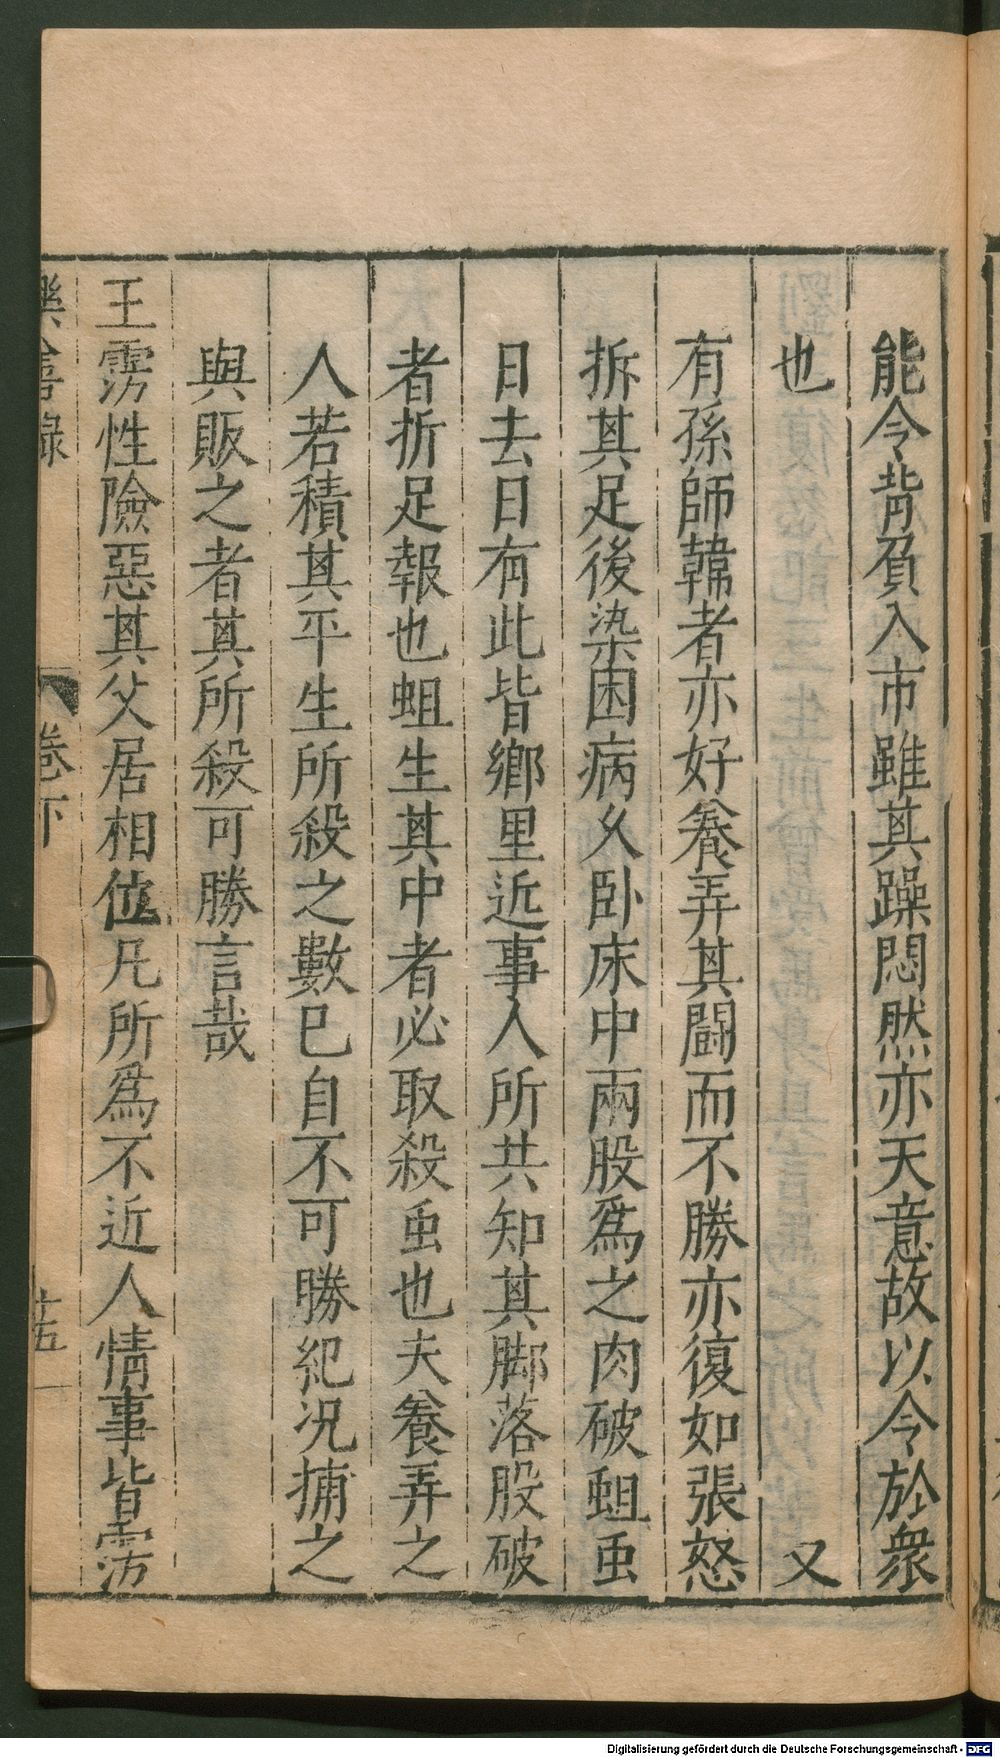 能令背負入市雖其躁悶然亦天意故以令於衆
也　又
有孫師韓者亦好養弄其闘而不勝亦復如張怒
拆其足後染困病久卧床中兩股爲之肉破蛆虫
日去日有此皆鄉里近事人所共知其脚落股破
者折足報也蛆生其中者必取殺虫也夫養弄之
人若積其平生所殺之數已自不可勝紀况捕之
與販之者其所殺可勝言哉
王雱性險惡其父居相位凡所爲不近人情事皆雱
樂善録
卷下
十五
Digitalisierung gefördert durch die Deutsche Forschungsgemeinschaft - DFG